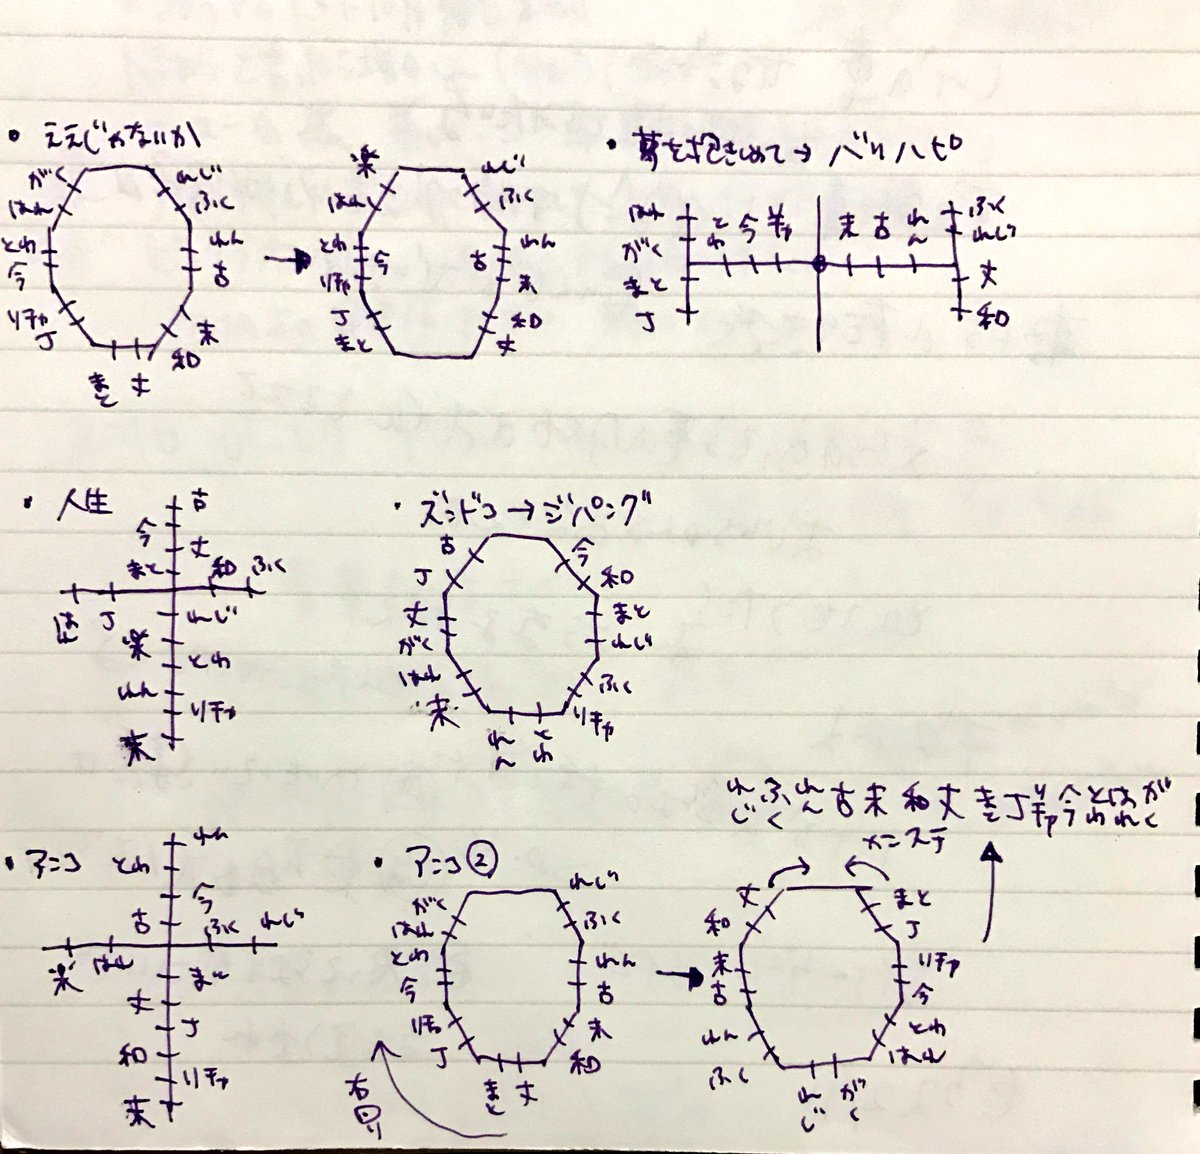 ・ええじゃないか
がく
はれ
とわ
今
リチャ
J
まと
丈
和
末
古
れん
ふく
れじ
楽
はれ
とわ
今
リチャ
J
まと
れじ
ふく
れん
古
末
和
丈
・夢を抱きしめて→バリハピ
はれ
がく
まと
J
とわ
今
リチャ
末
古
れん
ふく
れじ
丈
和
・人生
古
今
丈
まと
和
ふく
はれ
J
れじ
楽
とわ
れん
リチャ
末
・ズンドコ→ジパング
古
J
丈
がく
はれ
末
れん
とわ
今
和
まと
れじ
ふく
リチャ
・アニコ
れん
とわ
今
古
ふく
れじ
楽
はれ
まと
丈
J
和
リチャ
末
・アニコ②
がく
はれ
とわ
今
リチャ
J
まと
丈
れじ
ふく
れん
古
末
和
右回り
れじ ふく れん 古 末 和 丈 まと J リチャ 今 とわ はれ がく
メニステ
丈
和
末
古
れん
ふく
れじ
がく
まと
J
リチャ
今
とわ
はれ